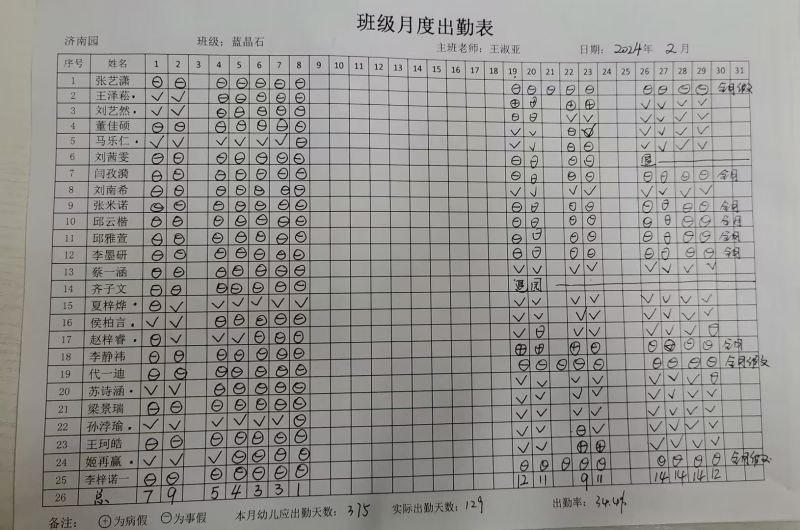 班级月度出勤表
济南园 班级：蓝晶石 主班老师：王淑亚 日期：2024年 2月
序号 姓名 1 2 3 4 5 6 7 8 9 10 11 12 13 14 15 16 17 18 19 20 21 22 23 24 25 26 27 28 29 30 31
1 张艺潇 ⊖ ⊖ ⊖ ⊖ ⊖ ⊖ ⊖ ⊖ ⊖ ⊖ ⊖ ⊖ ⊖ ⊖ ⊖ ⊖ 全月
2 王泽菘
3 刘艺然
4 董佳硕
5 马乐仁
6 刘茜雯 退
7 闫孜漪 全月
8 刘南希
9 张米诺 全月
10 邱云楷 全月
11 邱雅萱 全月
12 李墨研 全月
13 蔡一涵
14 齐子文 退园
15 夏梓烨
16 侯柏言
17 赵梓睿
18 李静祎 全月
19 代一迪 全月
20 苏诗涵
21 梁景瑞
22 孙浡瑜
23 王珂皓
24 姬再赢 全月
25 李梓诺一
26 总 7 9 5 4 3 3 1 12 11 9 11 14 14 14 12
备注： ⊕为病假 ⊖为事假 本月幼儿应出勤天数：375 实际出勤天数：129 出勤率：34.4%